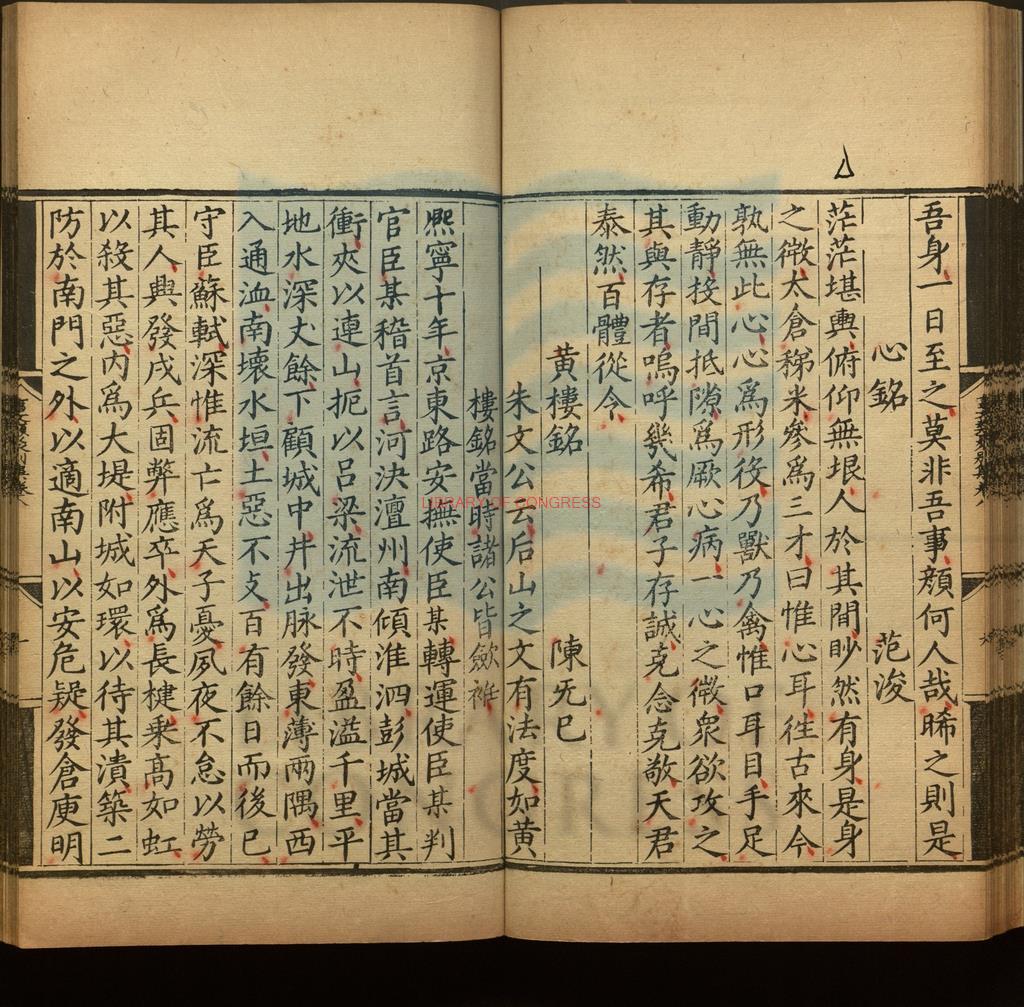 吾身一日至之莫非吾事顔何人哉晞之則是
心銘 范浚
茫茫堪輿俯仰無垠人於其間眇然有身是身
之微太倉稊米參爲三才曰惟心耳徃古來今
孰無此心心爲形役乃獸乃禽惟口耳目手足
動靜投間抵隙爲厥心病一心之微衆欲攻之
其與存者嗚呼幾希君子存誠克念克敬天君
泰然百體從令
黄樓銘 陳无已
朱文公云后山之文有法度如黄
樓銘當時諸公皆歛衽
熙寧十年京東路安撫使臣某轉運使臣某判
官臣某稽首言河決澶州南傾淮泗彭城當其
衝夾以連山扼以吕梁流泄不時盈溢千里平
地水深丈餘下顧城中井出脉發東薄兩隅西
入通洫南壞水垣土惡不支百有餘日而後已
守臣蘇軾深惟流亡爲天子憂夙夜不怠以勞
其人興發戍兵固弊應卒外爲長楗乗高如虹
以殺其惡内爲大堤附城如環以待其潰築二
防於南門之外以適南山以安危疑發倉庾明
LIBRARY OF CONGRESS